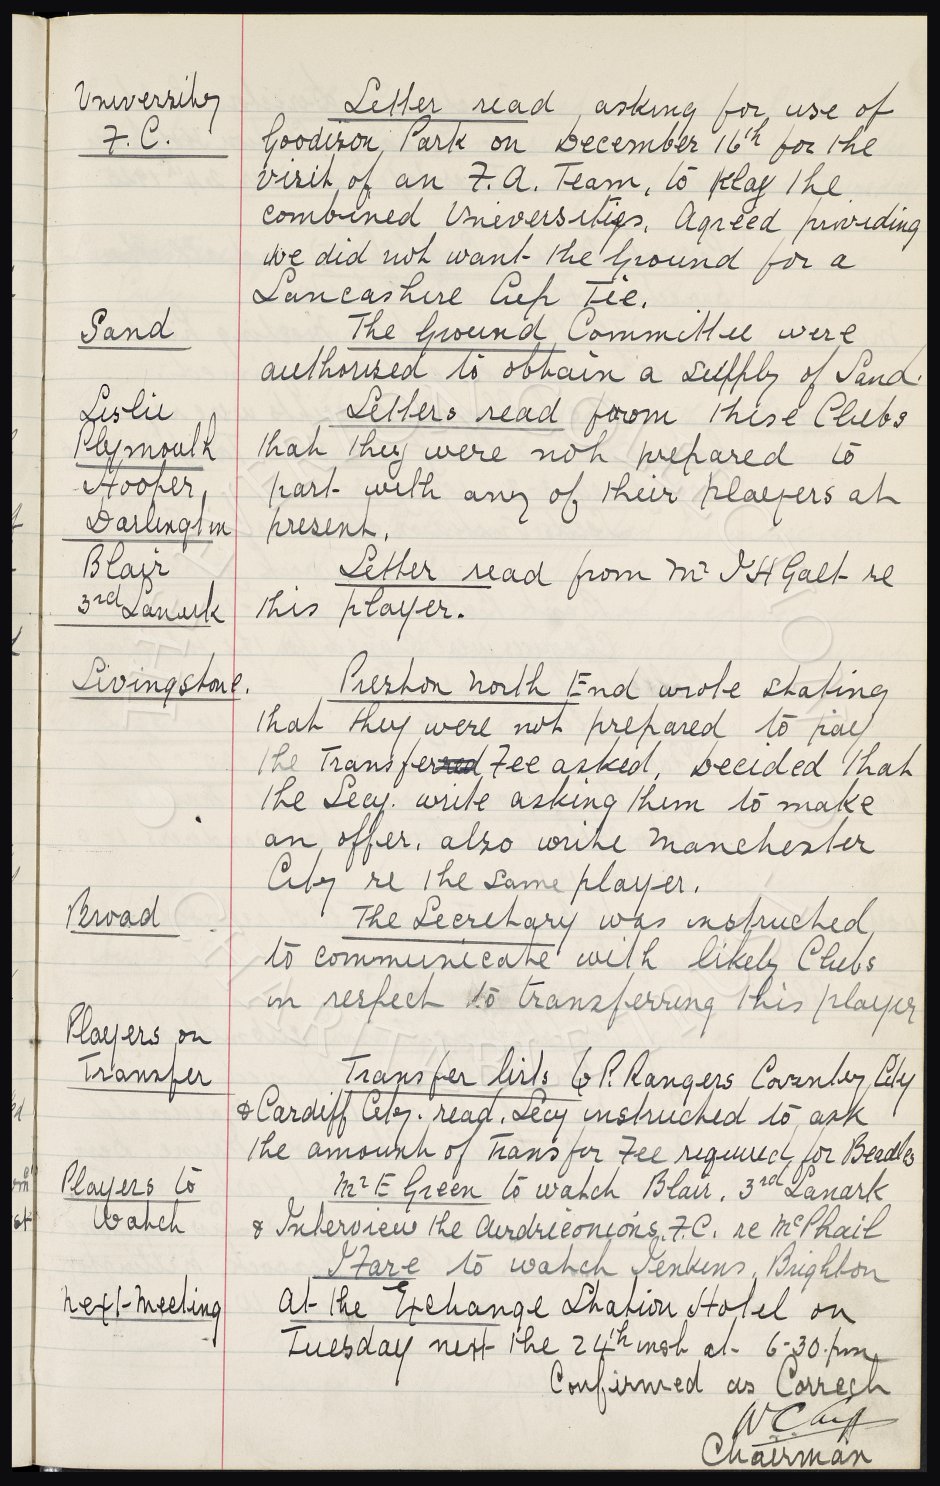 University
F. C.
Letter read asking for use of
Goodison Park on December 16th for the
visit of an F. A. Team, to play the
combined Universities. Agreed providing
we did not want the Ground for a
Lancashire Cup Tie.
Sand
The Ground Committee were
authorised to obtain a supply of Sand.
Leslie
Plymouth
Hooper,
Darlington
Letters read from these Clubs
that they were not prepared to
part with any of their players at
present.
Blair
3rd Lanark
Letter read from Mr J H Galt re
this player.
Livingstone.
Preston North End wrote stating
that they were not prepared to pay
the Transfer Fee asked, Decided that
the Secy. write asking them to make
an offer, also write Manchester
City re the same player.
Broad
The Secretary was instructed
to communicate with likely Clubs
in respect to transferring this player
Players on
Transfer
Transfer lists Q P. Rangers Coventry City
& Cardiff City. read. Secy instructed to ask
the amount of Transfer Fee required for Beadles
Players to
Watch
Mr E Green to watch Blair, 3rd Lanark
& Interview the Airdrieonians. F.C. re McPhail
J Fare to watch Jenkins, Brighton
Next Meeting
At the Exchange Station Hotel on
Tuesday next the 24th inst at 6-30 pm
Confirmed as Correct
W C Cuff
Chairman